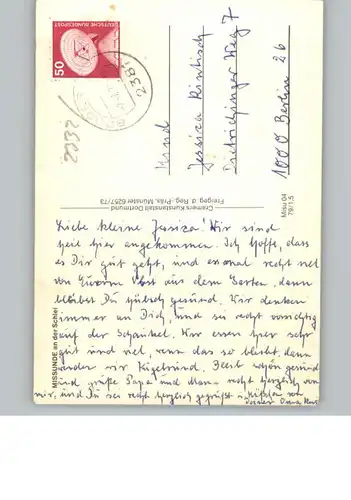 DEUTSCHE BUNDESPOST
50
238
2332
Kind
Jessica Rintisch
Weg 7
1000 Berlin 26
Cramers Kunstanstalt Dortmund
Freigeg. d. Reg.-Präs. Münster 6257/73
Misu 04
79/1.5
MISSUNDE an der Schlei
Liebe kleine Jessica! Wir sind
heil hier angekommen. Ich hoffe, dass
es Dir gut geht, und recht
Obst aus dem Garten, dann
bleibst Du hübsch gesund. Wir denken
immer an Dich, und sei recht vorsichtig
auf der Schaukel. Wir essen hier sehr
gut und viel, wenn das so bleibt, dann
wir kugelrund. Bleib schön gesund
und grüße Papa und Mama recht herzlich von
mir, und Du sei recht herzlich gegrüßt u. von
Deiner Oma